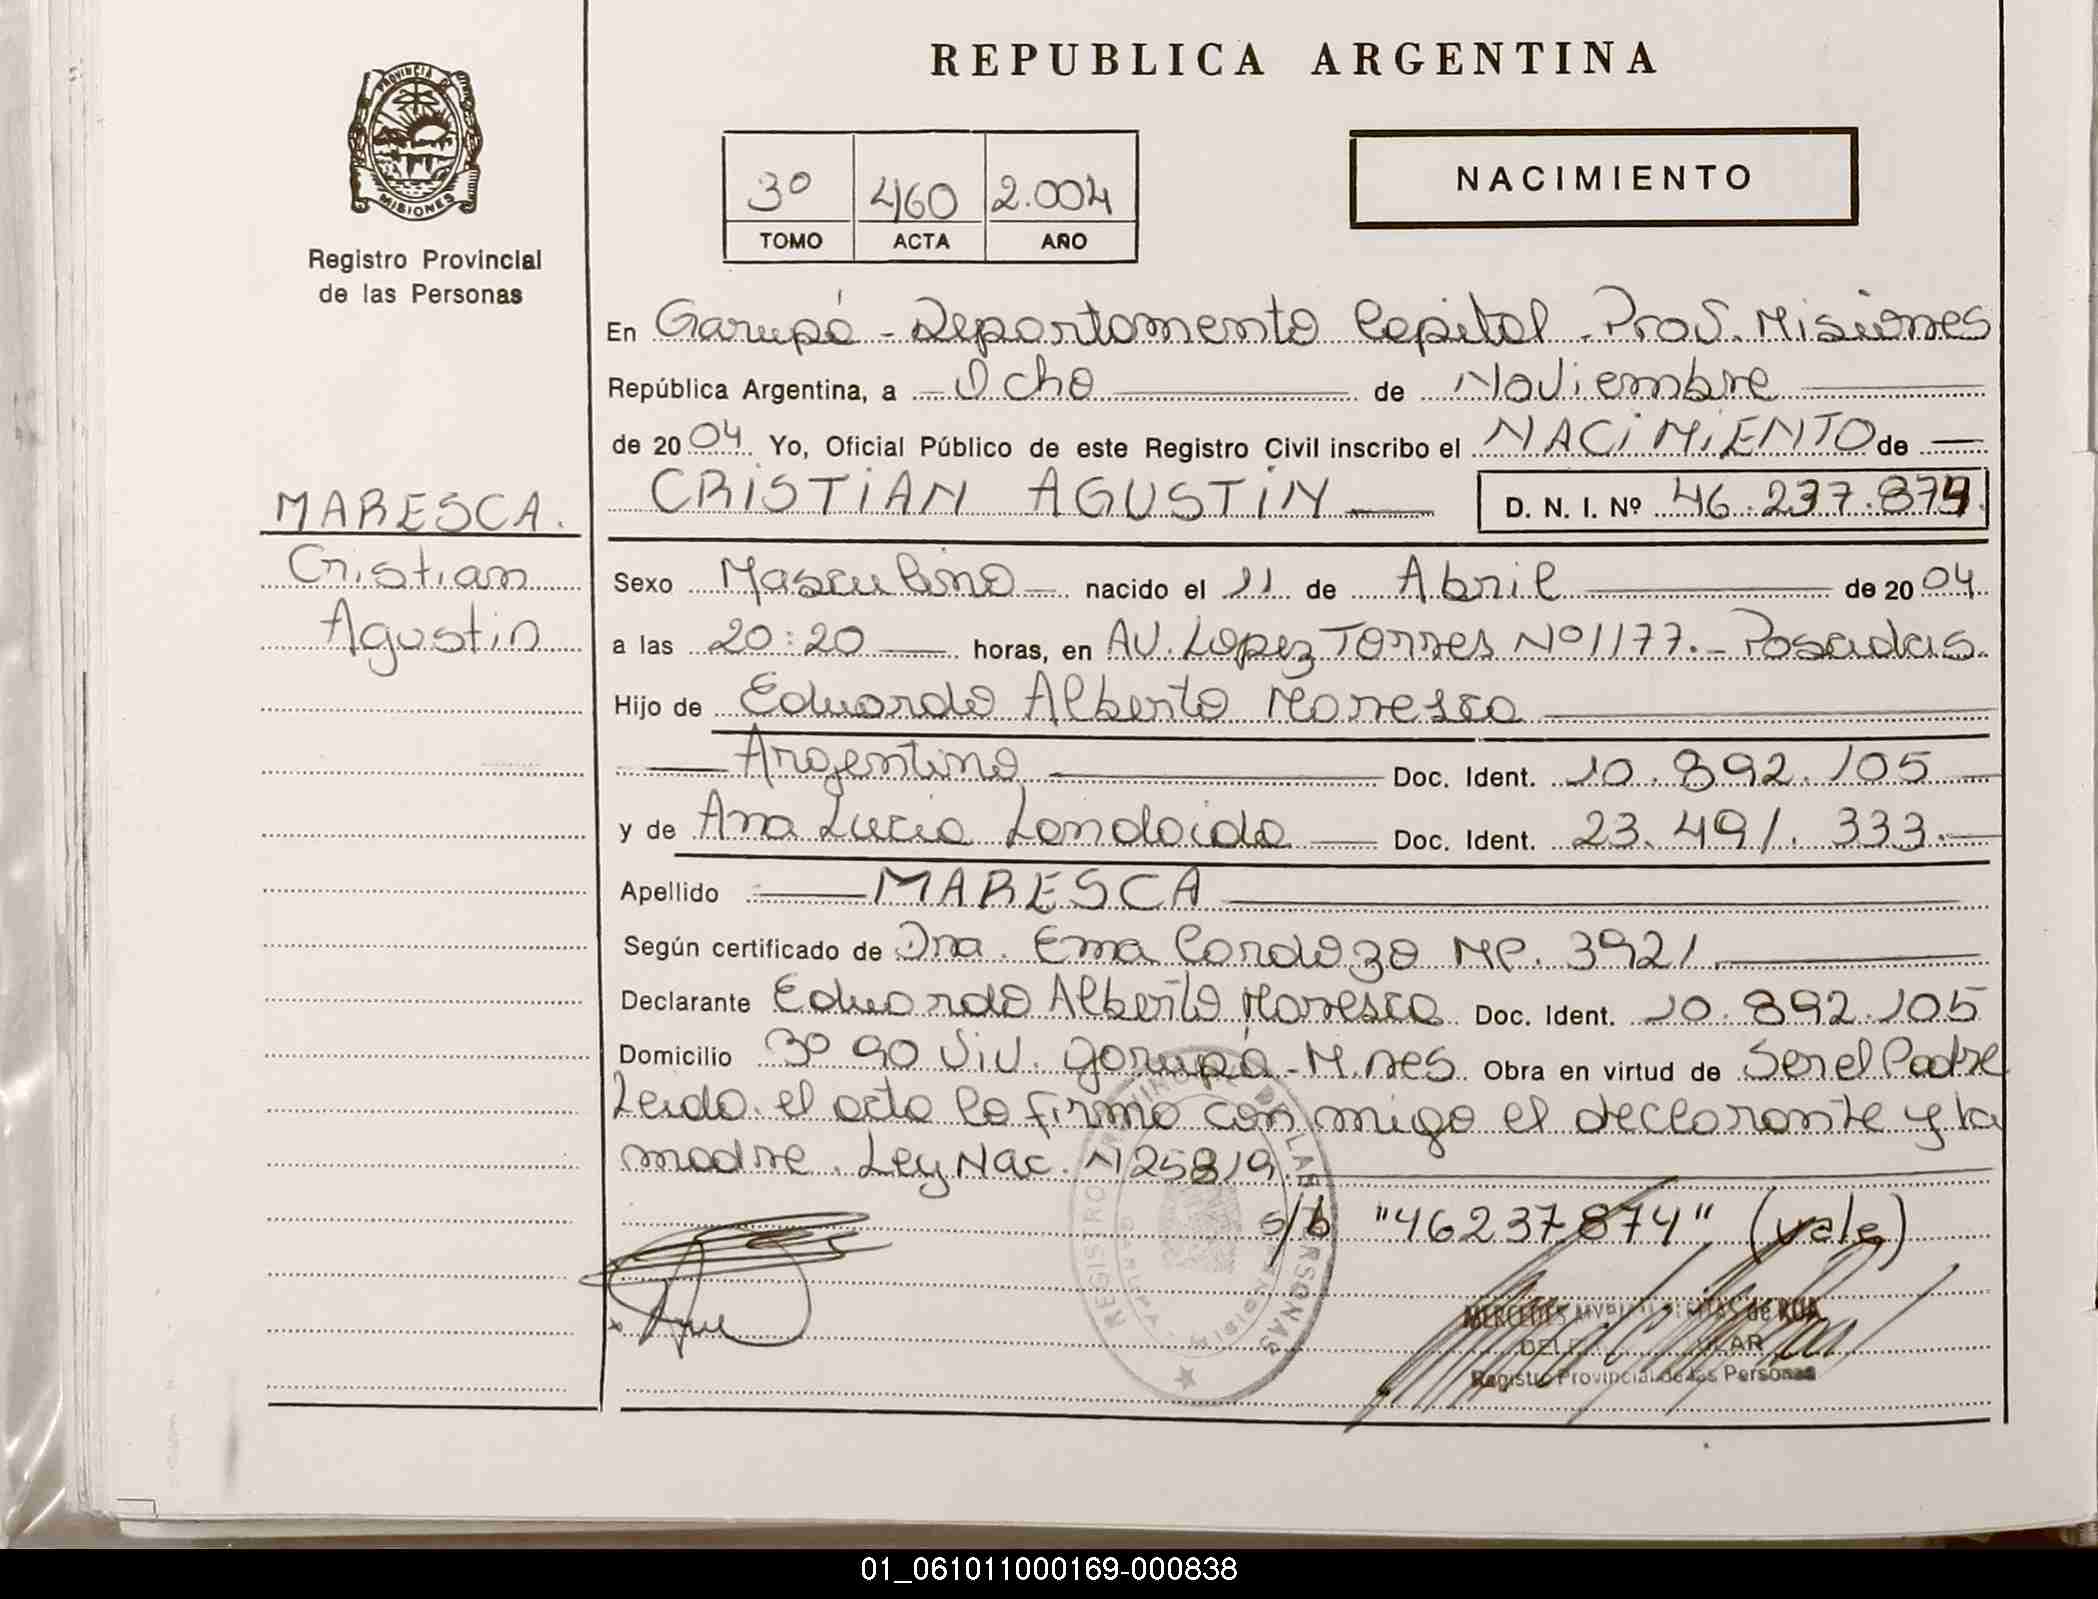 REPUBLICA ARGENTINA
PROVINCIA DE
MISIONES
Registro Provincial
de las Personas
3º 460 2.004
TOMO ACTA AÑO
NACIMIENTO
En Garupá - Departamento Capital - Prov. Misiones
República Argentina, a Ocho de Noviembre
de 2004 Yo, Oficial Público de este Registro Civil inscribo el NACIMIENTO de
CRISTIAN AGUSTIN D. N. I. Nº 46.237.874.
MARESCA.
Cristian
Agustin
Sexo Masculino nacido el 11 de Abril de 2004
a las 20:20 horas, en AV. Lopez Torres Nº 1177.- Posadas.
Hijo de Eduardo Alberto Maresca
Argentino Doc. Ident. 10.892.105
y de Ana Lucia Landaida Doc. Ident. 23.491.333.
Apellido MARESCA
Según certificado de Dra. Ema Cardozo MP. 3921.
Declarante Eduardo Alberto Maresca Doc. Ident. 10.892.105
Domicilio 3º 90 Viv. Garupá - M.nes Obra en virtud de Ser el Padre
Leida el acta la firma con migo el declarante y la
madre. Ley Nac. Nº 25819.
s/b "46237.874" (vale)
REGISTRO DE LAS PERSONAS
MERCEDES de RUA
Registro Provincial de las Personas
01_061011000169-000838